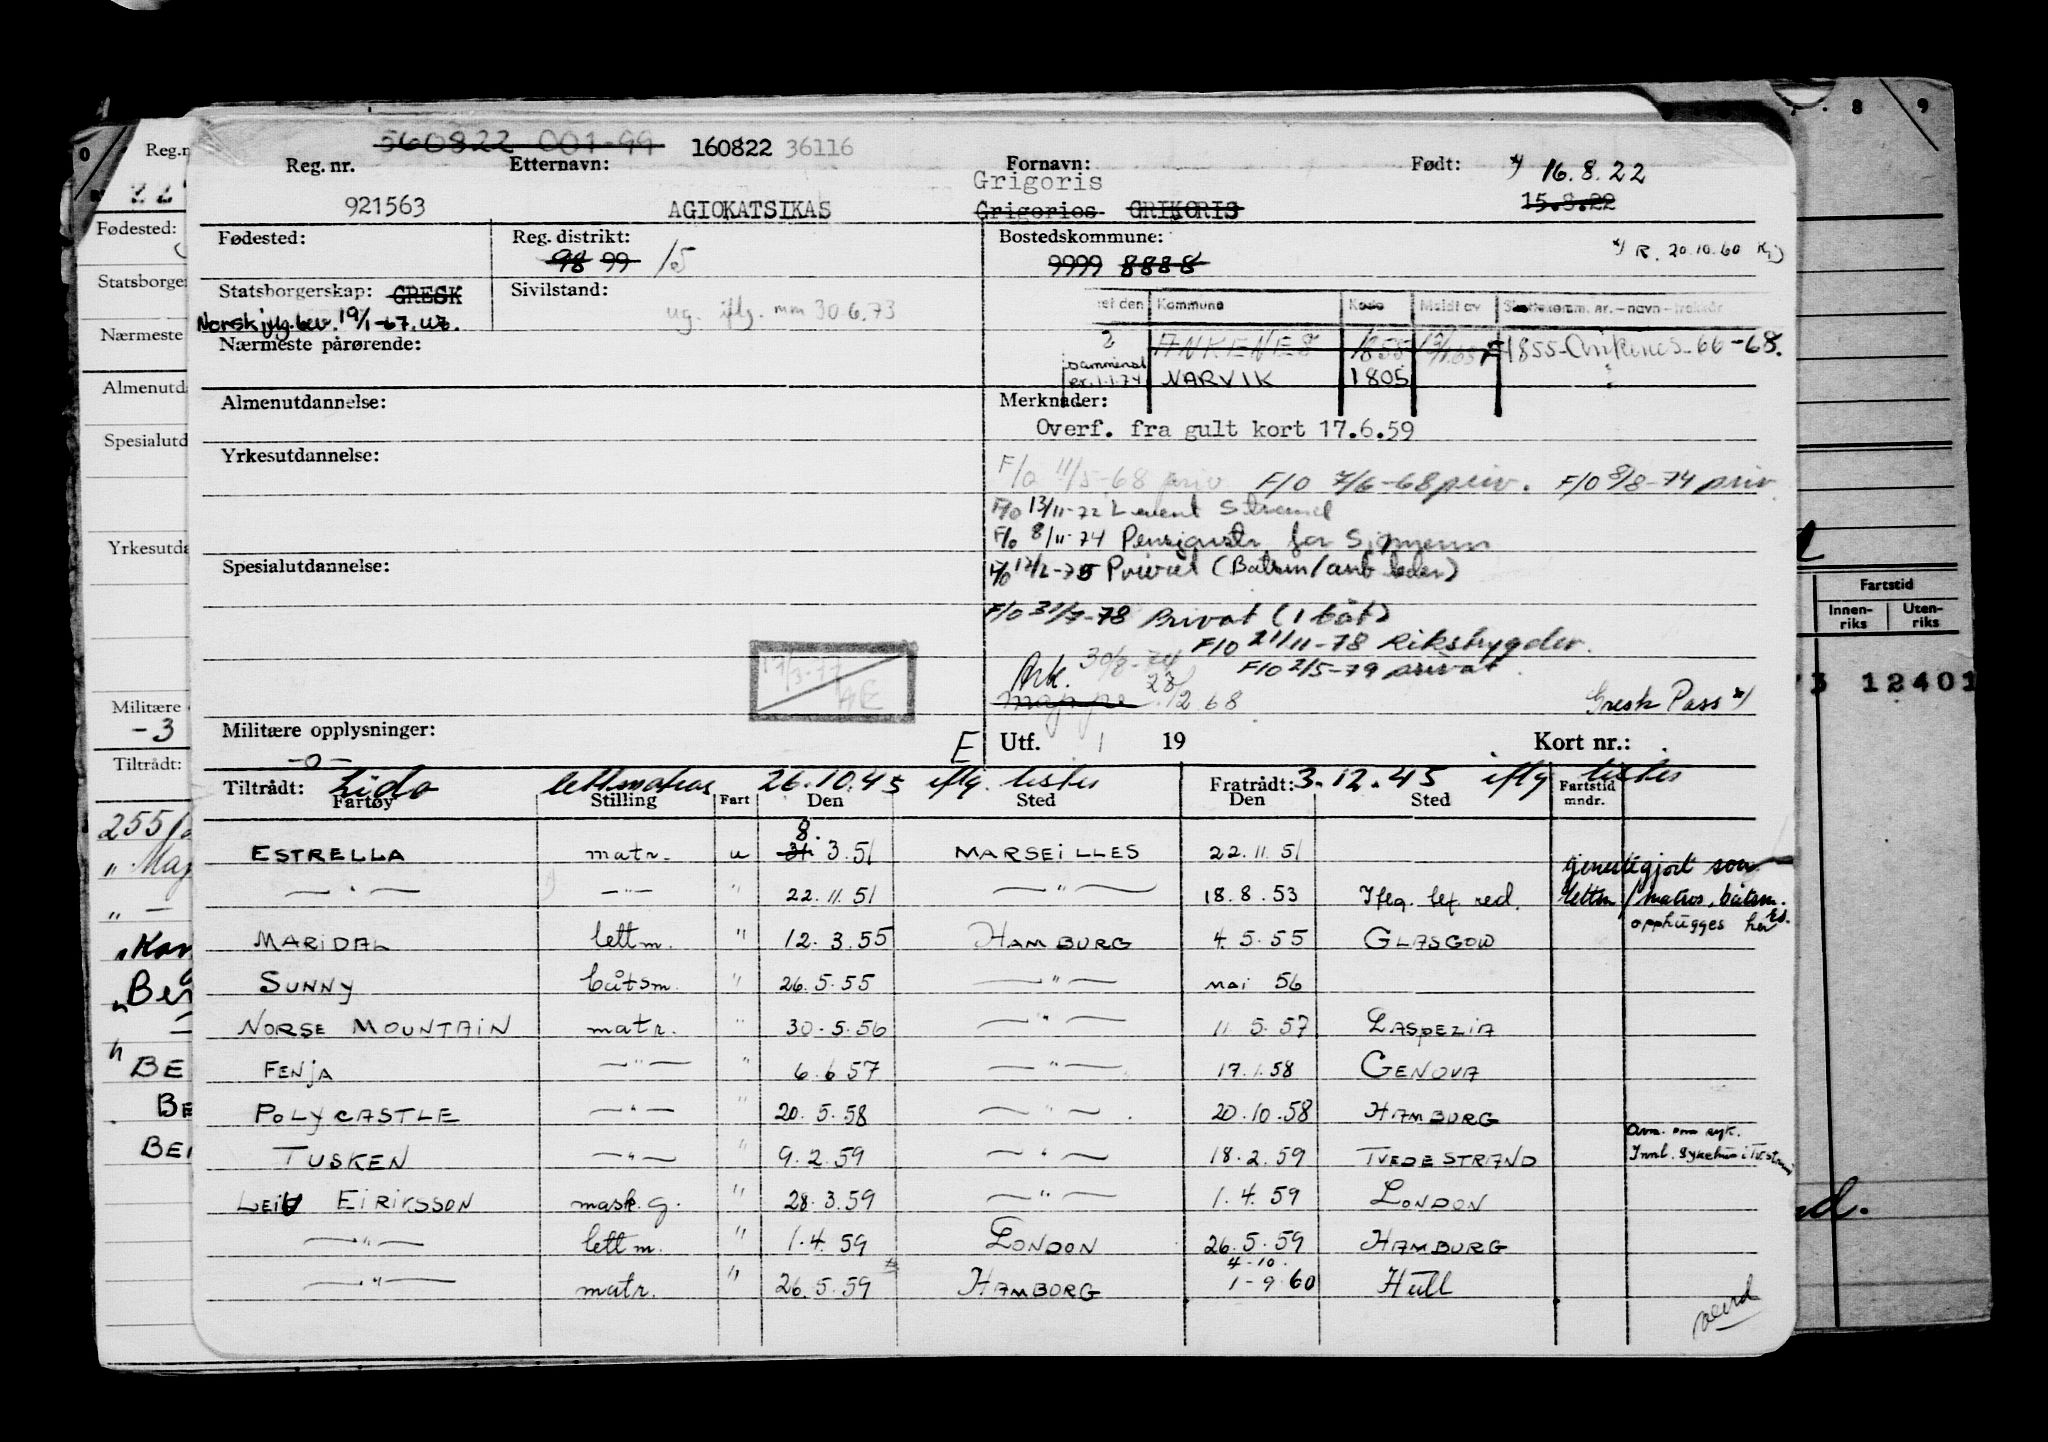 560822 001-99 160822 36116
Reg. nr. Etternavn: Fornavn: Født: x) 16.8.22
Grigoris
921563 AGIOKATSIKAS Grigorios GRIKORIS 15.8.22
Fødested: Reg. distrikt: Bostedskommune:
98 99 /5 9999 8888 x) R. 20.10.60
Statsborgerskap: GRESK Sivilstand:
ug. iflg. mm 30.6.73
Norsk jfg. bev. 19/1-67.
Kommune Kode Meldt av Skattekomm. nr. - navn - trekkår
Nærmeste pårørende:
2 ANKENES 1855 1855-Ankenes-66-68.
sammensl. pr. 1.1.74 NARVIK 1805
Almenutdannelse: Merknader:
Overf. fra gult kort 17.6.59
Yrkesutdannelse:
F/o 11/5-68 priv F/O 7/6-68 priv. F/O 8/8-74 priv
F/o 13/11-72
F/o 8/11-74 Pensjonstr for Sjømenn
Spesialutdannelse:
F/o 12/2-75 Privat (Båtsm/
F/O 31/7-78 Privat (1 båt)
F/O 21/11-78 Rikstrygdev.
17/3-77
Ark. 30/8-74
F/O 2/5-79 privat
mappe 12 68 Gresk Pass x)
Militære opplysninger: E Utf. 19 Kort nr.:
-o-
Tiltrådt: Lido lettmatros 26.10.45 iflg. lister Fratrådt: 3.12.45 iflg lister
Fartøy Stilling Fart Den Sted Den Sted Fartstid mndr.
8.
ESTRELLA matr. u 31 3.51 MARSEILLES 22.11.51
gjennemgjort som
—"— —"— " 22.11.51 —"— 18.8.53 Iflg. lef. red. lettm / matros, båtsm.
opphugges her
MARIDAL lettm. " 12.3.55 HAMBURG 4.5.55 GLASGOW
SUNNY båtsm. " 26.5.55 —"— mai 56
NORSE MOUNTAIN matr. " 30.5.56 —"— 11.5.57 LASPEZIA
FENJA —"— " 6.6 57 —"— 17.1.58 GENOVA
POLYCASTLE —"— " 20.5.58 —"— 20.10.58 HAMBURG
Avm. om syk.
TUSKEN —"— " 9.2.59 —"— 18.2.59 TVEDESTRAND Innl. sykehus i Tv.strand
LEIV EIRIKSSON mask. g. " 28.3.59 —"— 1.4.59 LONDON
—"— lettm. " 1.4.59 LONDON 26.5.59 HAMBURG
4-10.
—"— matr. " 26.5.59 HAMBORG 1-9-60 Hull
vend
Reg.n
Fødested:
Statsborger
Nærmeste
Almenutda
Spesialutd
Yrkesutda
Militære
-3
Tiltrådt:
255
" Maj
" —
" Kar
" Ber
" BE
BE
BER
8 9
Fartstid
Innen-riks Uten-riks
3 12401